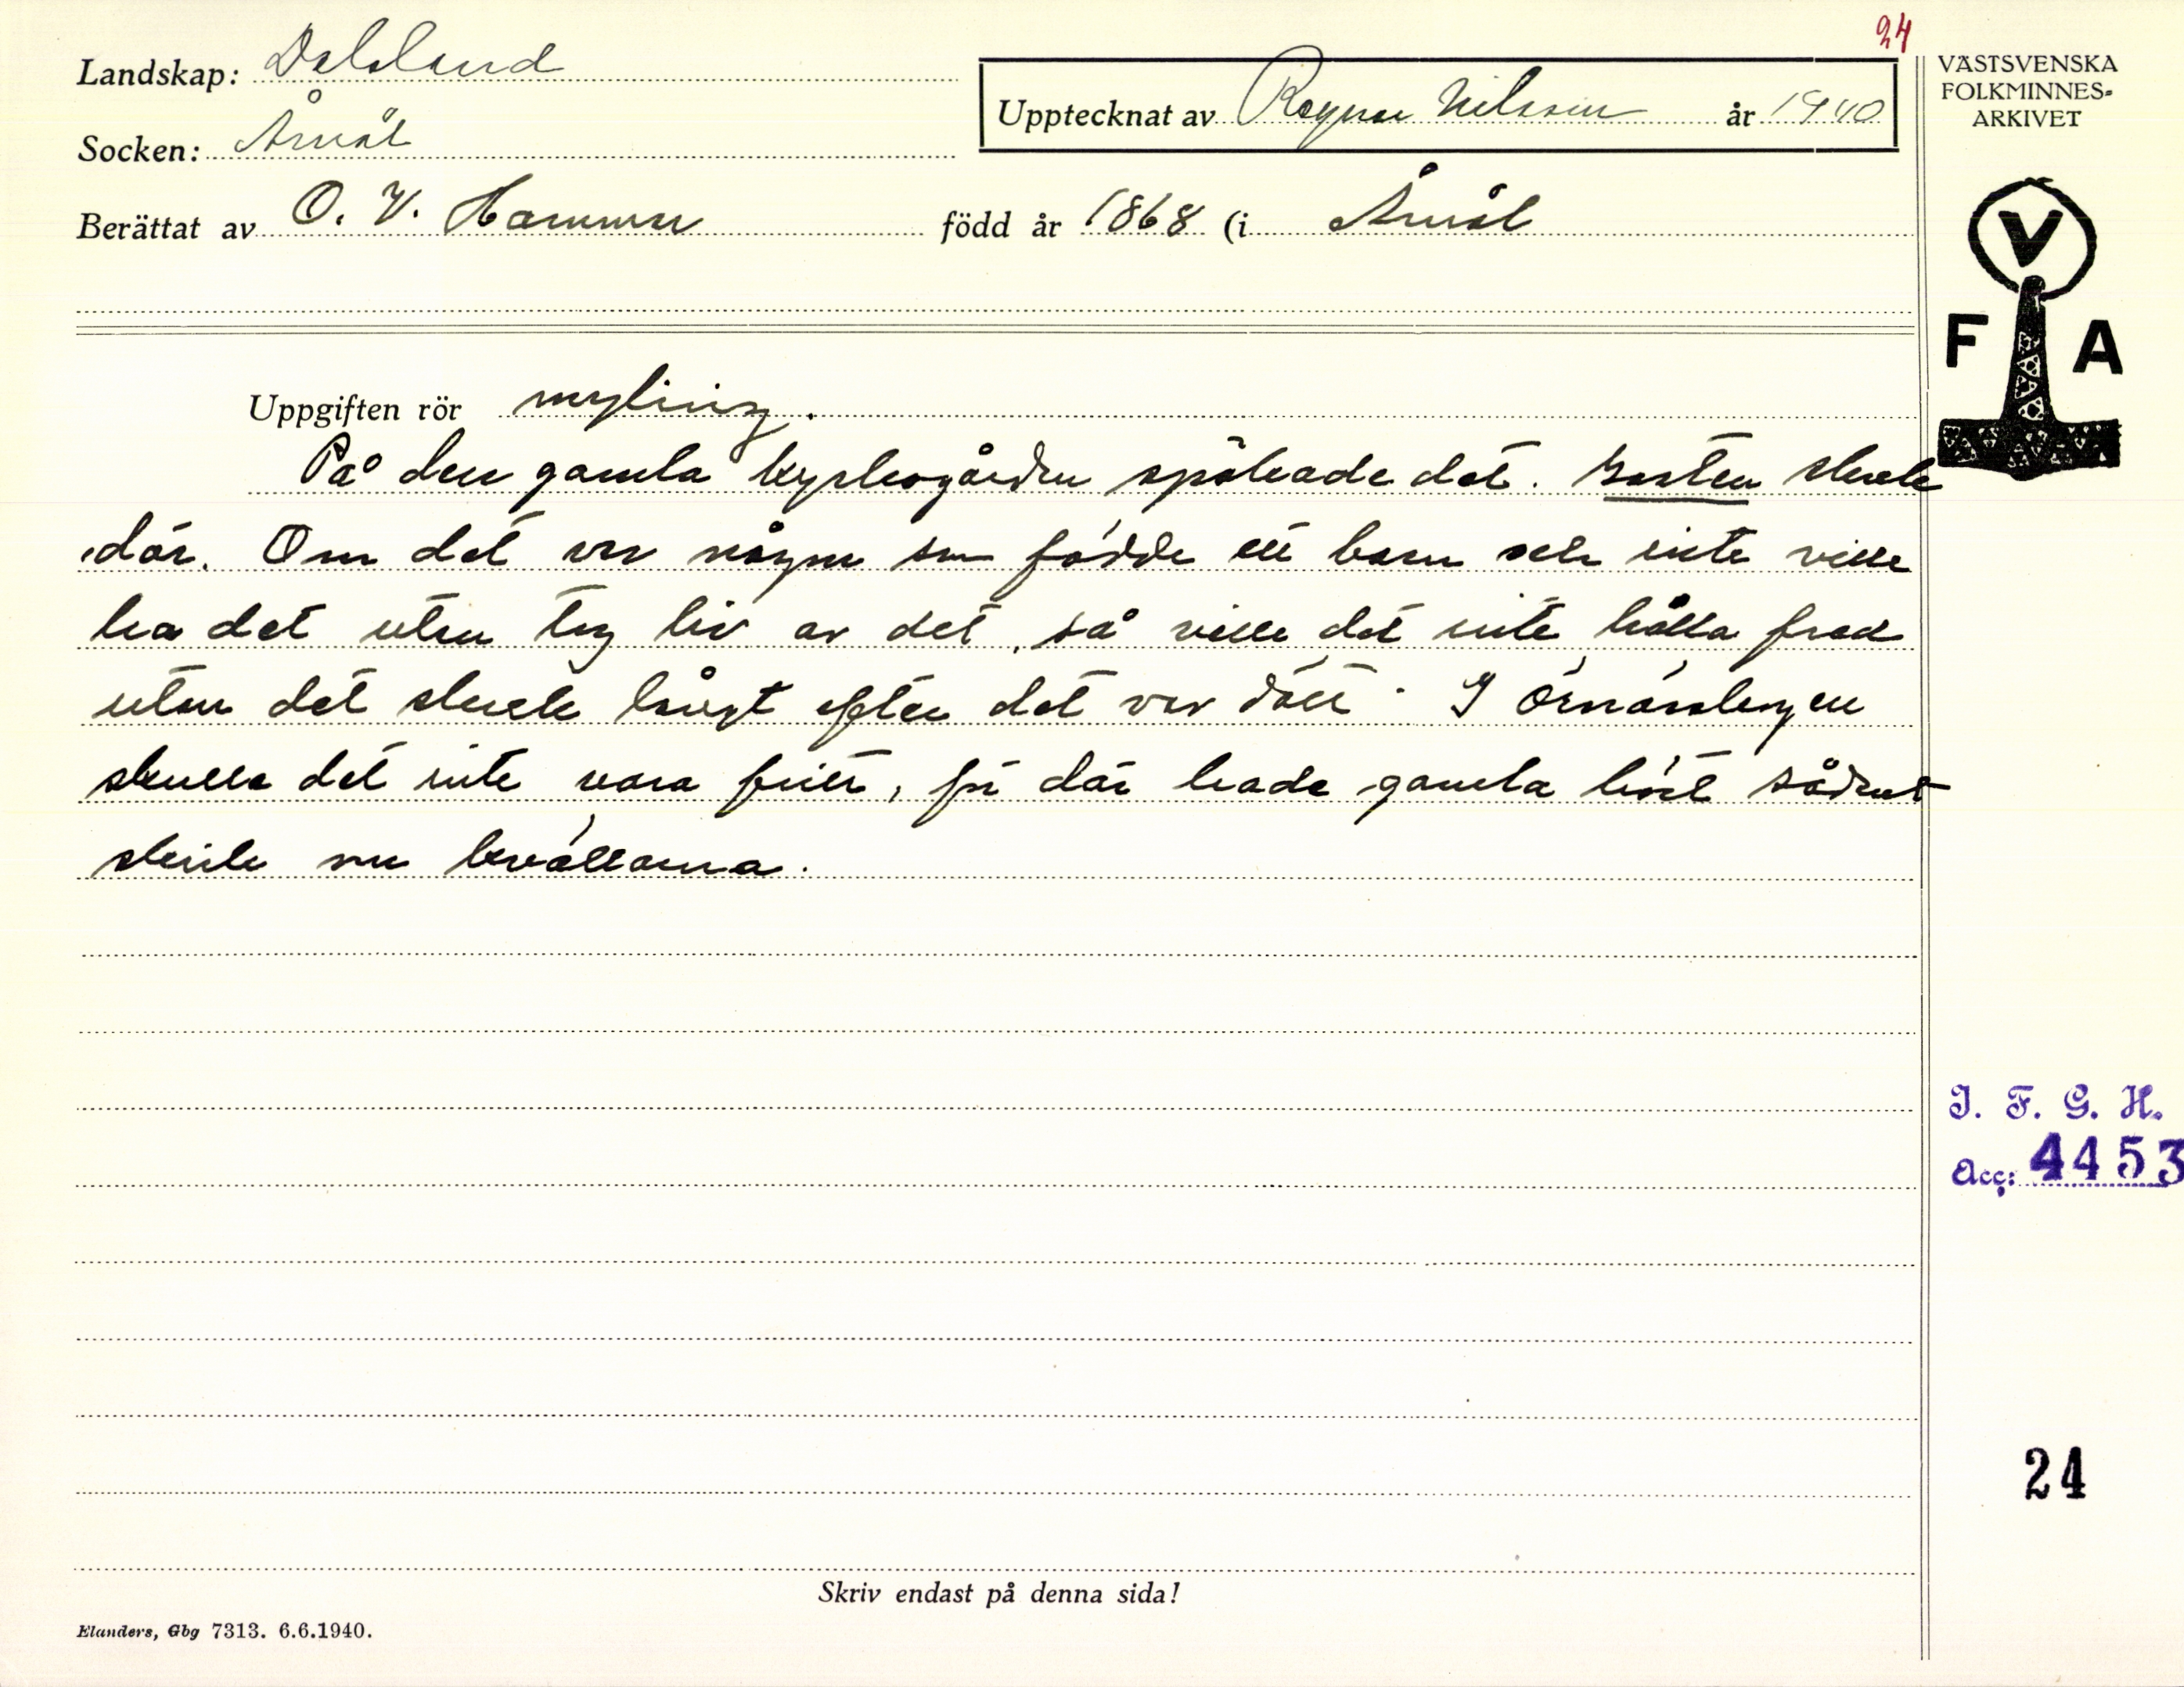 24
Landskap: Dalsland
VÄSTSVENSKA
FOLKMINNES-
ARKIVET
Upptecknat av Ragnar Nilsson år 1940
Socken: Åmål
Berättat av O. V. Hammar född år 1868 (i Åmål
V
F A
Uppgiften rör myling.
På den gamla kyrkogården spökade det. Gasten skrek
där. Om det var någon som födde ett barn och inte ville
ha det utan tog liv av det, så ville det inte hålla fred
utan det skrek långt efter det var dött. I Örnässkogen
skulle det inte vara fritt, för där hade gamla hört sådant
skrik om kvällarna.
I. F. G. H.
Acc: 4453
24
Skriv endast på denna sida!
Elanders, Gbg 7313. 6.6.1940.